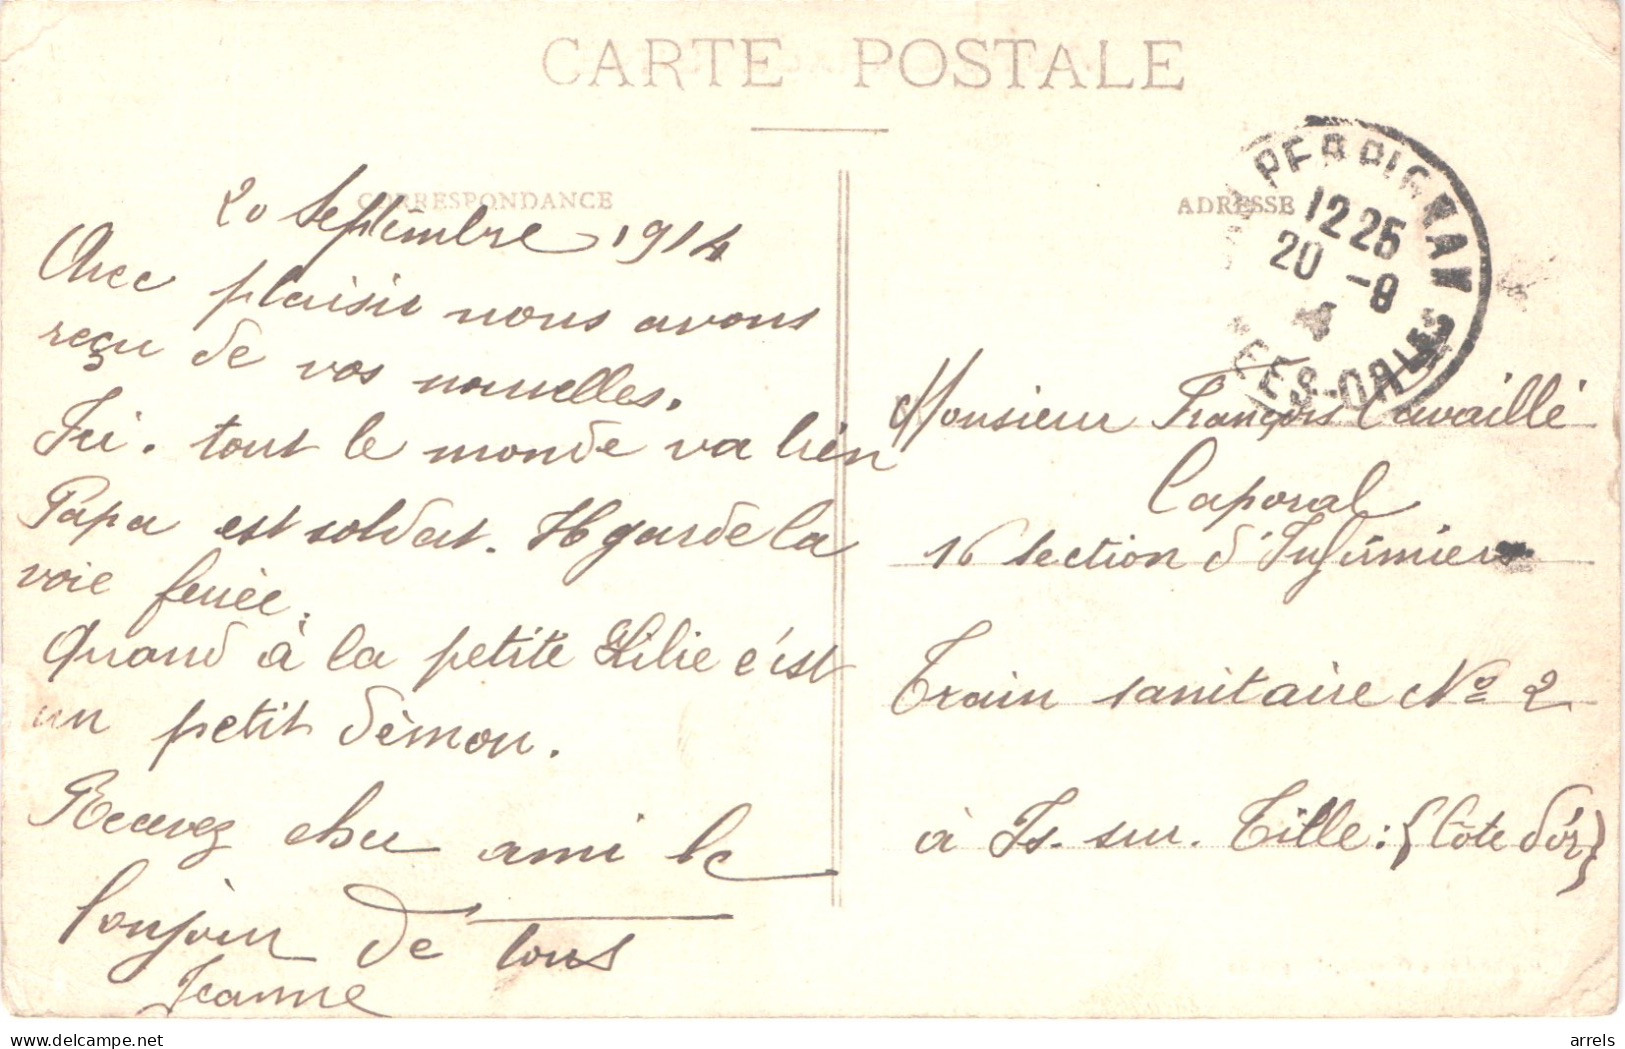 CARTE POSTALE
CORRESPONDANCE
ADRESSE
PERPIGNAN
12 25
20 -9
EES-ORLES
20 Septembre 1914
Avec plaisir nous avons
reçu de vos nouvelles.
Ici. tout le monde va bien
Papa est soldat. Il garde la
voie ferrée.
Quand à la petite Lilie c'est
un petit démon.
Recevez cher ami le
bonjour de tous
Jeanne
Monsieur François Cavaillé
Caporal
16 section d'Infirmiers
Train sanitaire No 2
à Is. sur. Tille: (Côte d'or)
delcampe.net
arrels